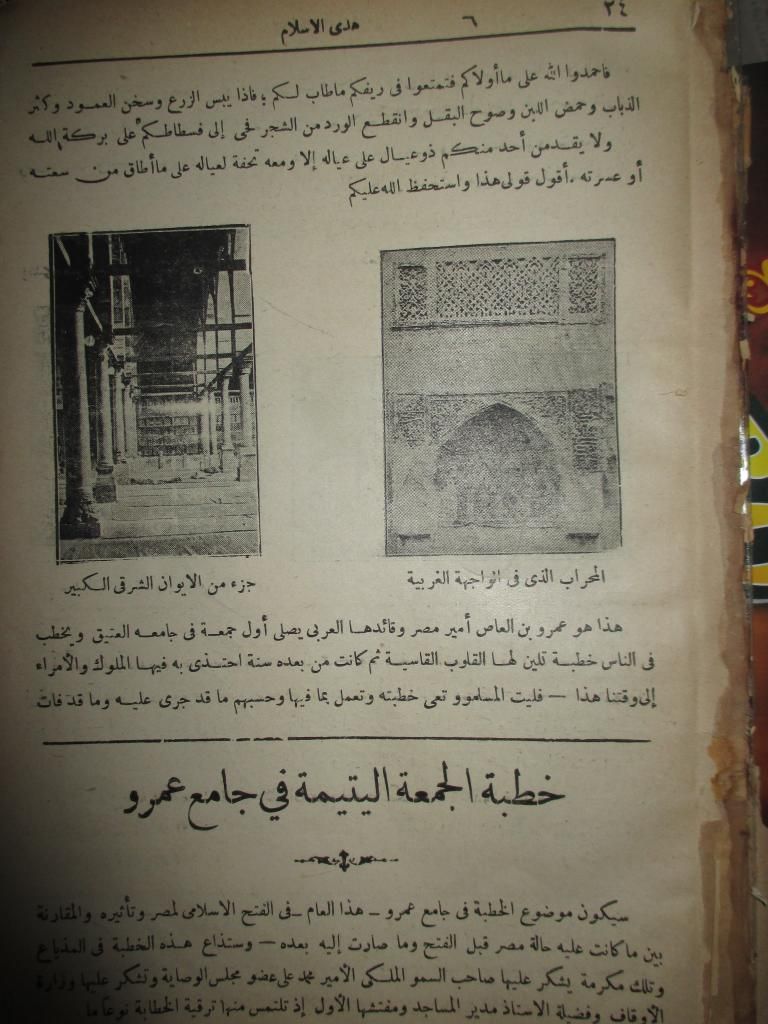 ٢٤
٦
هدى الاسلام
فاحمدوا الله على ماأولاكم فتمتعوا فى ريفكم ماطاب لكم ؛ فاذا يبس الزرع وسخن العمود وكثر
الذباب وحمض اللبن وصوح البقل وانقطع الورد من الشجر فحى إلى فسطاطكم على بركة الله
ولا يقدمن أحد منكم ذوعيال على عياله إلا ومعه تحفة لعياله على ماأطاق من سعته
أو عسرته . أقول قولى هذا واستحفظ الله عليكم
المحراب الذى فى الواجهة الغربية
جزء من الايوان الشرقى الكبير
هذا هو عمرو بن العاص أمير مصر وقائدها العربى يصلى أول جمعة فى جامعه العتيق ويخطب
فى الناس خطبة تلين لها القلوب القاسية ثم كانت من بعده سنة احتذى به فيها الملوك والأمراء
إلى وقتنا هذا — فليت المسلموو تعى خطبته وتعمل بما فيها وحسبهم ما قد جرى عليه وما قد فات
خطبة الجمعة اليتيمة في جامع عمرو
سيكون موضوع الخطبة فى جامع عمرو – هذا العام – فى الفتح الاسلامى لمصر وتأثيره والمقارنة
بين ما كانت عليه حالة مصر قبل الفتح وما صارت إليه بعده — وستذاع هذه الخطبة فى المذياع
وتلك مكرمة يشكر عليها صاحب السمو الملكى الأمير محمد على عضو مجلس الوصاية وتشكر عليها وزارة
الأوقاف وفضيلة الاستاذ مدير المساجد ومفتشها الأول إذ تلتمس منها ترقية الخطابة نوعا ما